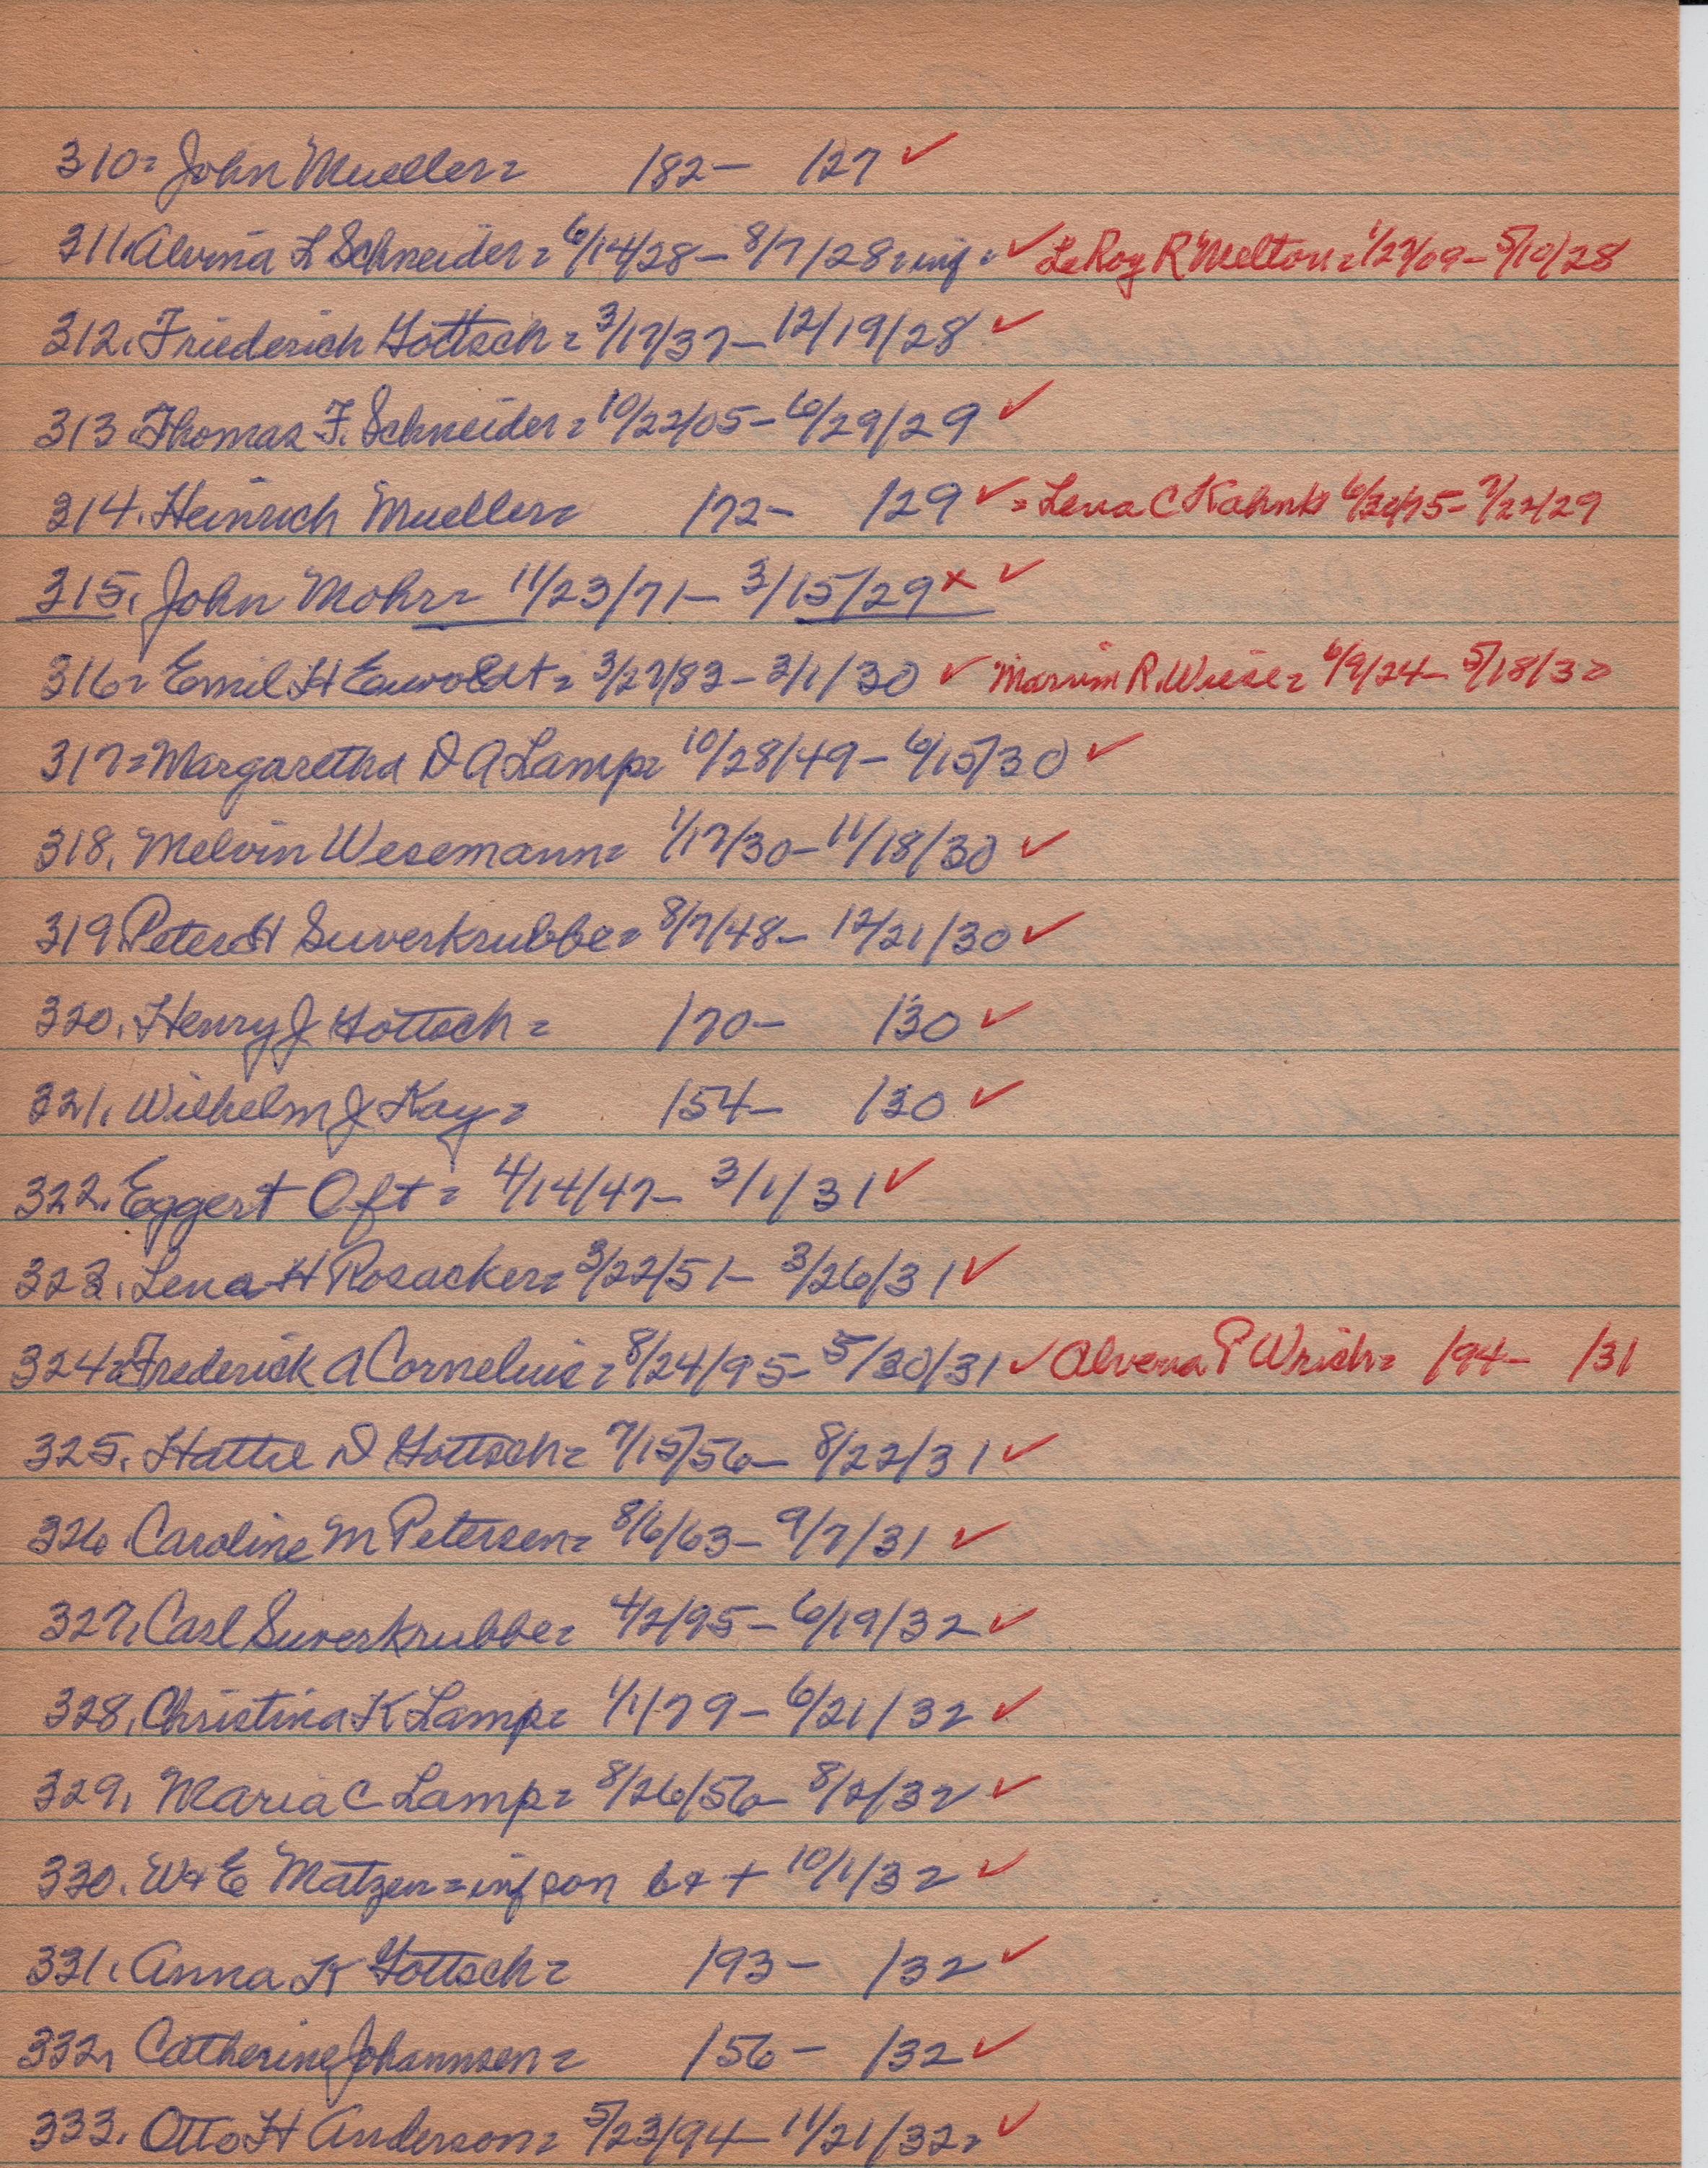 310= John Mueller= /82- /27 ✓
311. Alvina L Schneider= 6/14/28- 8/7/28= inf. ✓ LeRoy R Melton= 1/27/09- 5/10/28
312. Friederich Gottsch= 3/17/37- 12/19/28 ✓
313. Thomas F. Schneider= 10/22/05- 6/29/29 ✓
314. Heinrich Mueller= /72- /29 ✓ = Lena C Kahnk 7/22/29
315. John Mohr= 11/23/71- 3/15/29 x ✓
316= Emil H Ewoldt= 3/27/83- 3/1/30 ✓ Marvin R. Wiese= 6/9/24- 5/18/30
317= Margaretha D A Lamp= 10/28/49- 6/15/30 ✓
318. Melvin Wesemann= 1/17/30- 11/18/30 ✓
319. Peter H Suverkrubbe= 8/7/48- 12/21/30 ✓
320. Henry J Gottsch= /70- /30 ✓
321. Wilhelm J Kay= /54- /30 ✓
322. Eggert Oft= 4/14/47- 3/1/31 ✓
323. Lena H Rosacker= 3/22/51- 3/26/31 ✓
324= Frederick A Cornelius= 8/24/95- 5/30/31 ✓ Alvena P Wrich= /94- /31
325. Hattie D Gottsch= 7/15/56- 8/22/31 ✓
326. Caroline M Petersen= 8/6/63- 9/7/31 ✓
327. Carl Suverkrubbe= 4/2/95- 6/19/32 ✓
328. Christina K Lamp= 1/1/79- 6/21/32 ✓
329. Maria C Lamp= 8/26/56- 8/2/32 ✓
330. W+E Matzen= inf son b+ + 10/1/32 ✓
331. Anna K Gottsch= /93- /32 ✓
332. Catherine Johannsen= /56- /32 ✓
333. Otto H Anderson= 5/23/94- 11/21/32= ✓